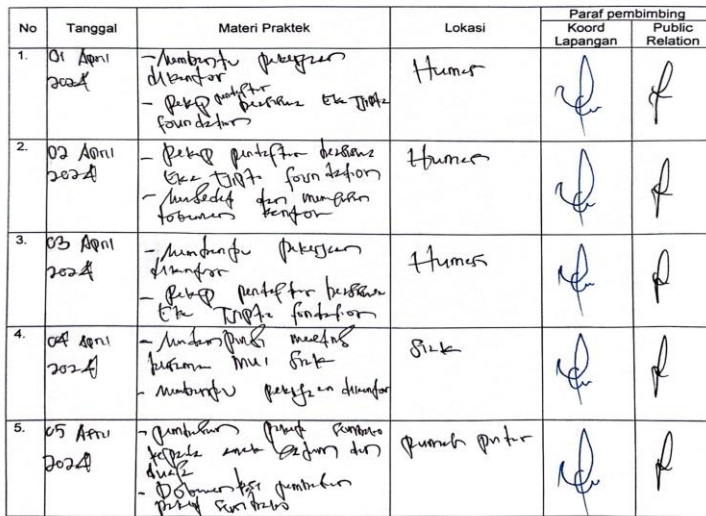 No Tanggal Materi Praktek Lokasi Paraf pembimbing
Koord Lapangan Public Relation
1. 01 April 2024
- Membantu pekerjaan
dikantor
- Rekap pendaftar beasiswa Eka Tjipta
foundation
Humas
2. 02 April 2024
- Rekap pendaftar beasiswa
Eka Tjipta foundation
- dan
dokumen kantor
Humas
3. 03 April 2024
- Membantu pekerjaan
dikantor
- Rekap pendaftar beasiswa
Eka Tjipta foundation
Humas
4. 04 April 2024
- meeting
MUI Siak
- Membantu pekerjaan dikantor
Siak
5. 05 April 2024
- paket sembako
kepada anak dan
- Dokumentasi
paket sembako
Rumah pintar